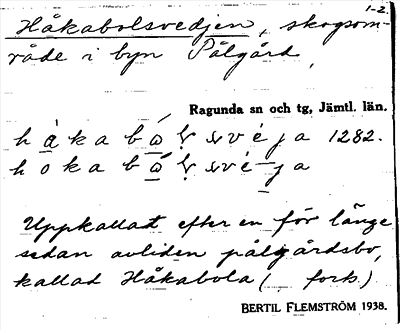 1-2.
Håkabolsvedjen, skogsom-
råde i byn Pålgård
Ragunda sn och tg, Jämtl. län.
1282.
Uppkallat efter en för länge
sedan avliden pålgårdsbo,
kallad Håkabola ( fork.)
BERTIL FLEMSTRÖM 1938.